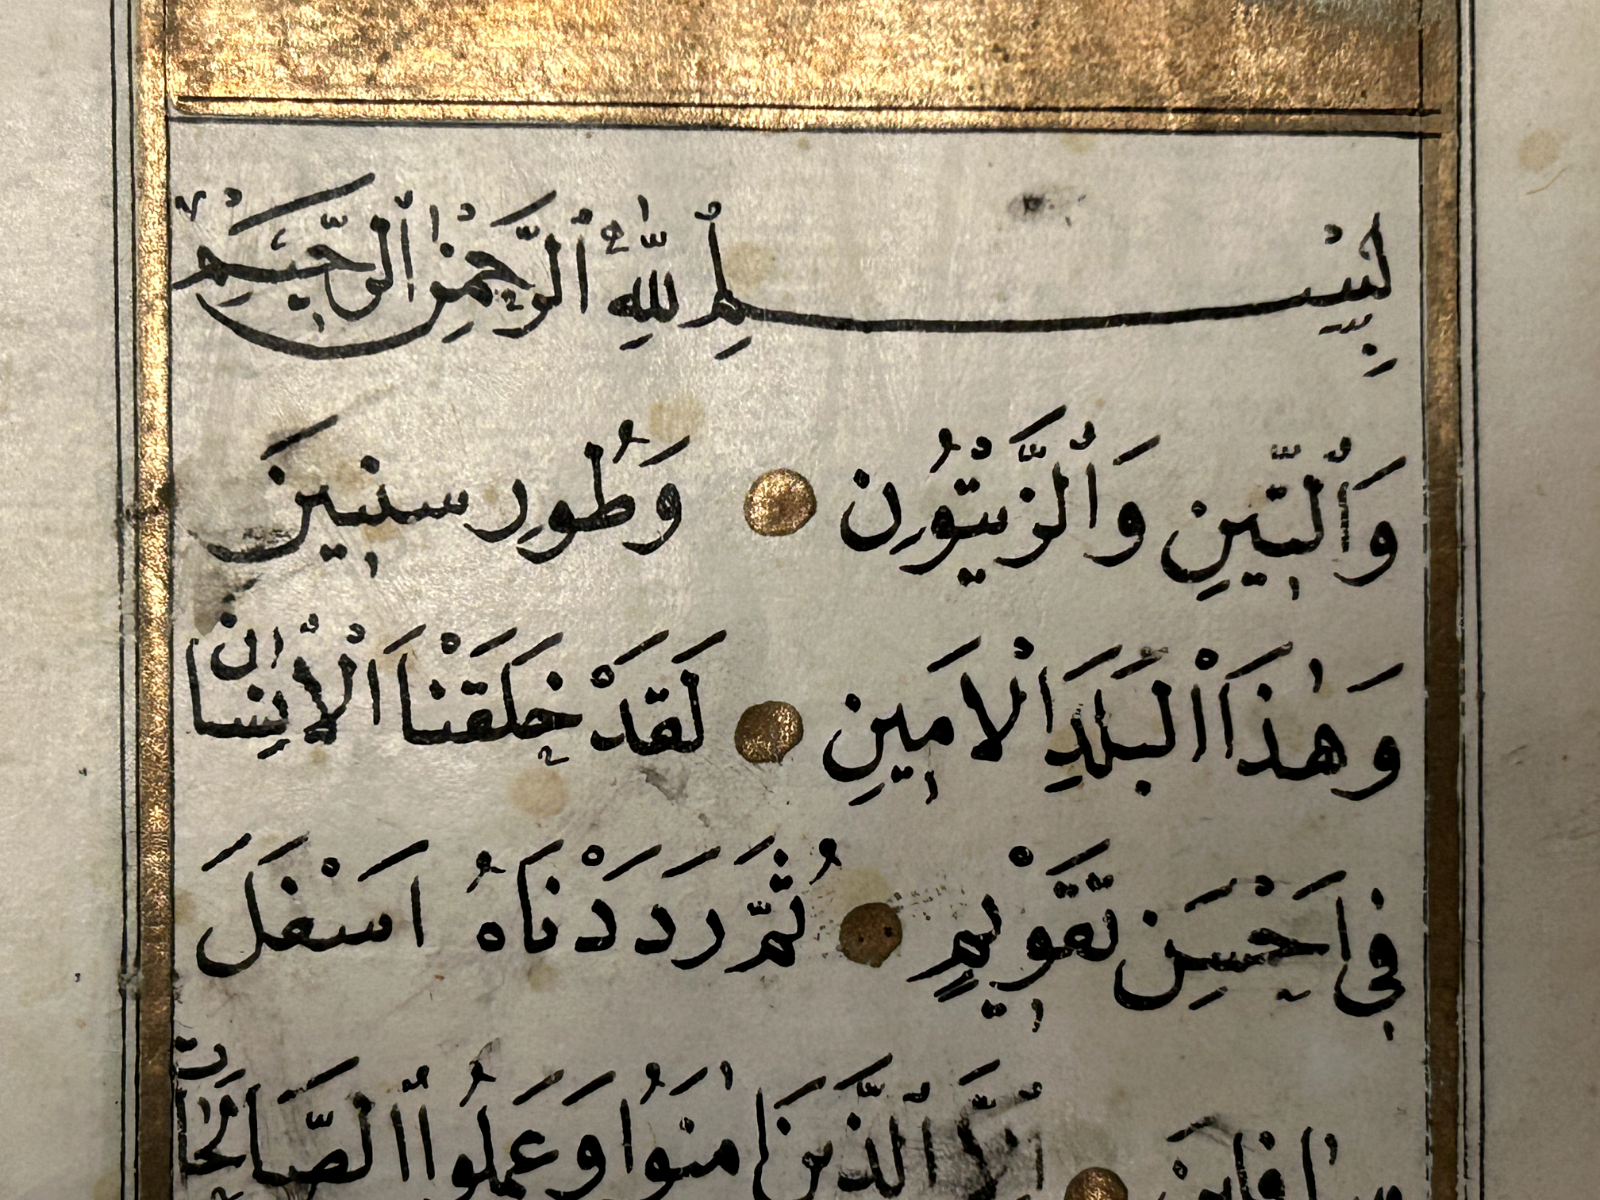 بِسْمِ اللّٰهِ الرَّحْمٰنِ الرَّحِيمِ
وَٱلتِّينِ وَٱلزَّيْتُونِ وَطُورِ سِنِينَ
وَهٰذَا ٱلْبَلَدِ الْاَمِينِ لَقَدْ خَلَقْنَا الْاِنْسَانَ
فِى اَحْسَنِ تَقْوِيمٍ ثُمَّ رَدَدْنَاهُ اَسْفَلَ
سَافِلِينَ اِلَّا ٱلَّذِينَ اٰمَنُوا وَعَمِلُوا ٱلصَّالِحَاتِ